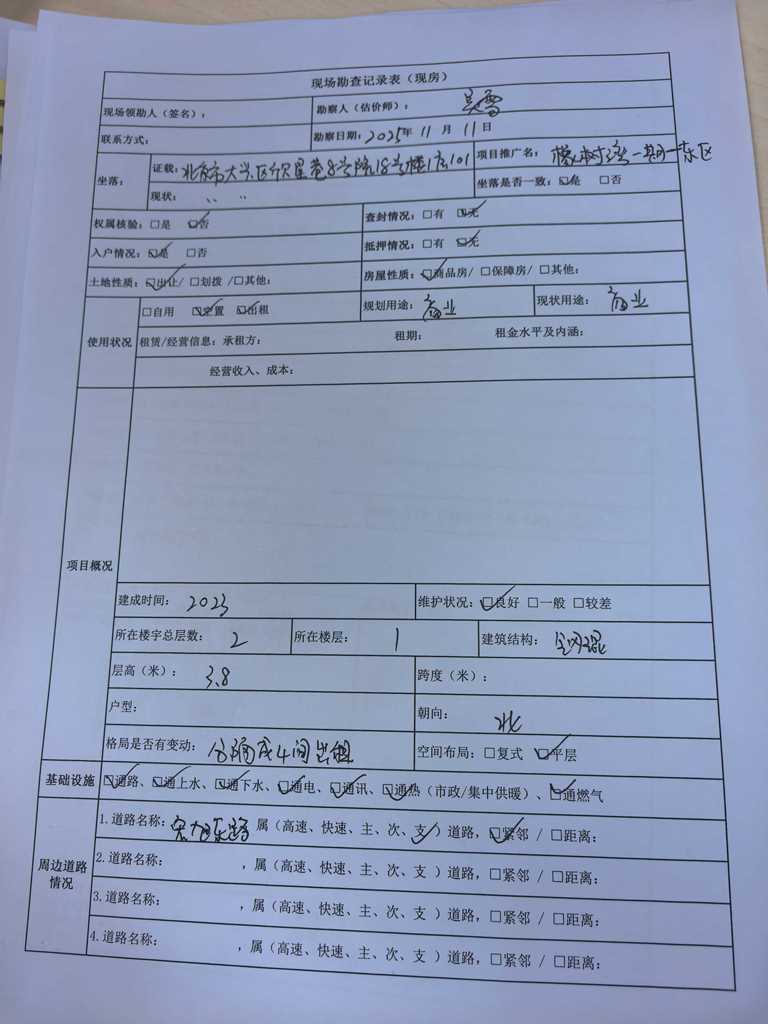 现场勘查记录表（现房）
现场领勘人（签名）： 勘察人（估价师）： 吴雪
联系方式： 勘察日期：2025年 11 月 11 日
坐落： 证载：北京市大兴区 8号院18号楼1层101 项目推广名：橡树湾一期一东区
现状： 〃 〃 坐落是否一致：☑是 □否
权属核验：□是 ☑否 查封情况：□有 ☑无
入户情况：☑是 □否 抵押情况：□有 ☑无
土地性质：☑出让/ □划拨 /□其他： 房屋性质：☑商品房/ □保障房/ □其他：
使用状况 □自用 ☑空置 ☑出租 规划用途： 商业 现状用途： 商业
租赁/经营信息：承租方： 租期： 租金水平及内涵：
经营收入、成本：
项目概况
建成时间： 2023 维护状况：☑良好 □一般 □较差
所在楼宇总层数： 2 所在楼层： 1 建筑结构： 钢混
层高（米）： 3.8 跨度（米）：
户型： 朝向： 北
格局是否有变动： 分隔成4间出租 空间布局：□复式 ☑平层
基础设施 ☑通路、☑通上水、☑通下水、☑通电、☑通讯、☑通热（市政/集中供暖）、☑通燃气
周边道路情况 1.道路名称： 东路 属（高速、快速、主、次、支✓）道路，☑紧邻 / □距离：
2.道路名称： ，属（高速、快速、主、次、支 ）道路，□紧邻 / □距离：
3.道路名称： ，属（高速、快速、主、次、支 ）道路，□紧邻 / □距离：
4.道路名称： ，属（高速、快速、主、次、支 ）道路，□紧邻 / □距离：